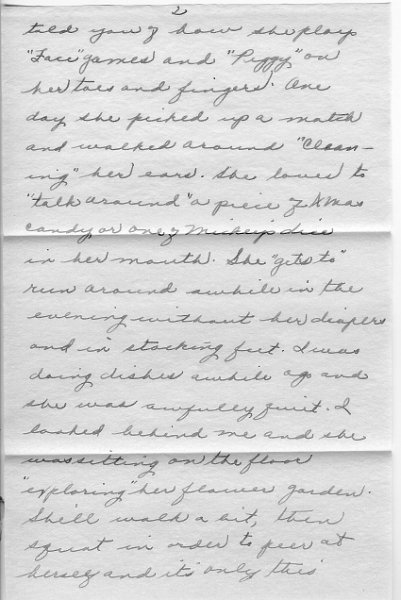 2
told you of how she plays
"Face" games and "Piggy" on
her toes and fingers. One
day she picked up a match
and walked around "Clean-
ing" her ears. She loves to
"talk around" a piece of Xmas
candy or one of Mickey's dice
in her mouth. She "gets to"
run around awhile in the
evening without her diapers
and in stocking feet. I was
doing dishes awhile ago and
she was awfully quiet. I
looked behind me and she
was sitting on the floor
"exploring" her flower garden.
She'll walk a bit, then
squat in order to peer at
herself and it's only this